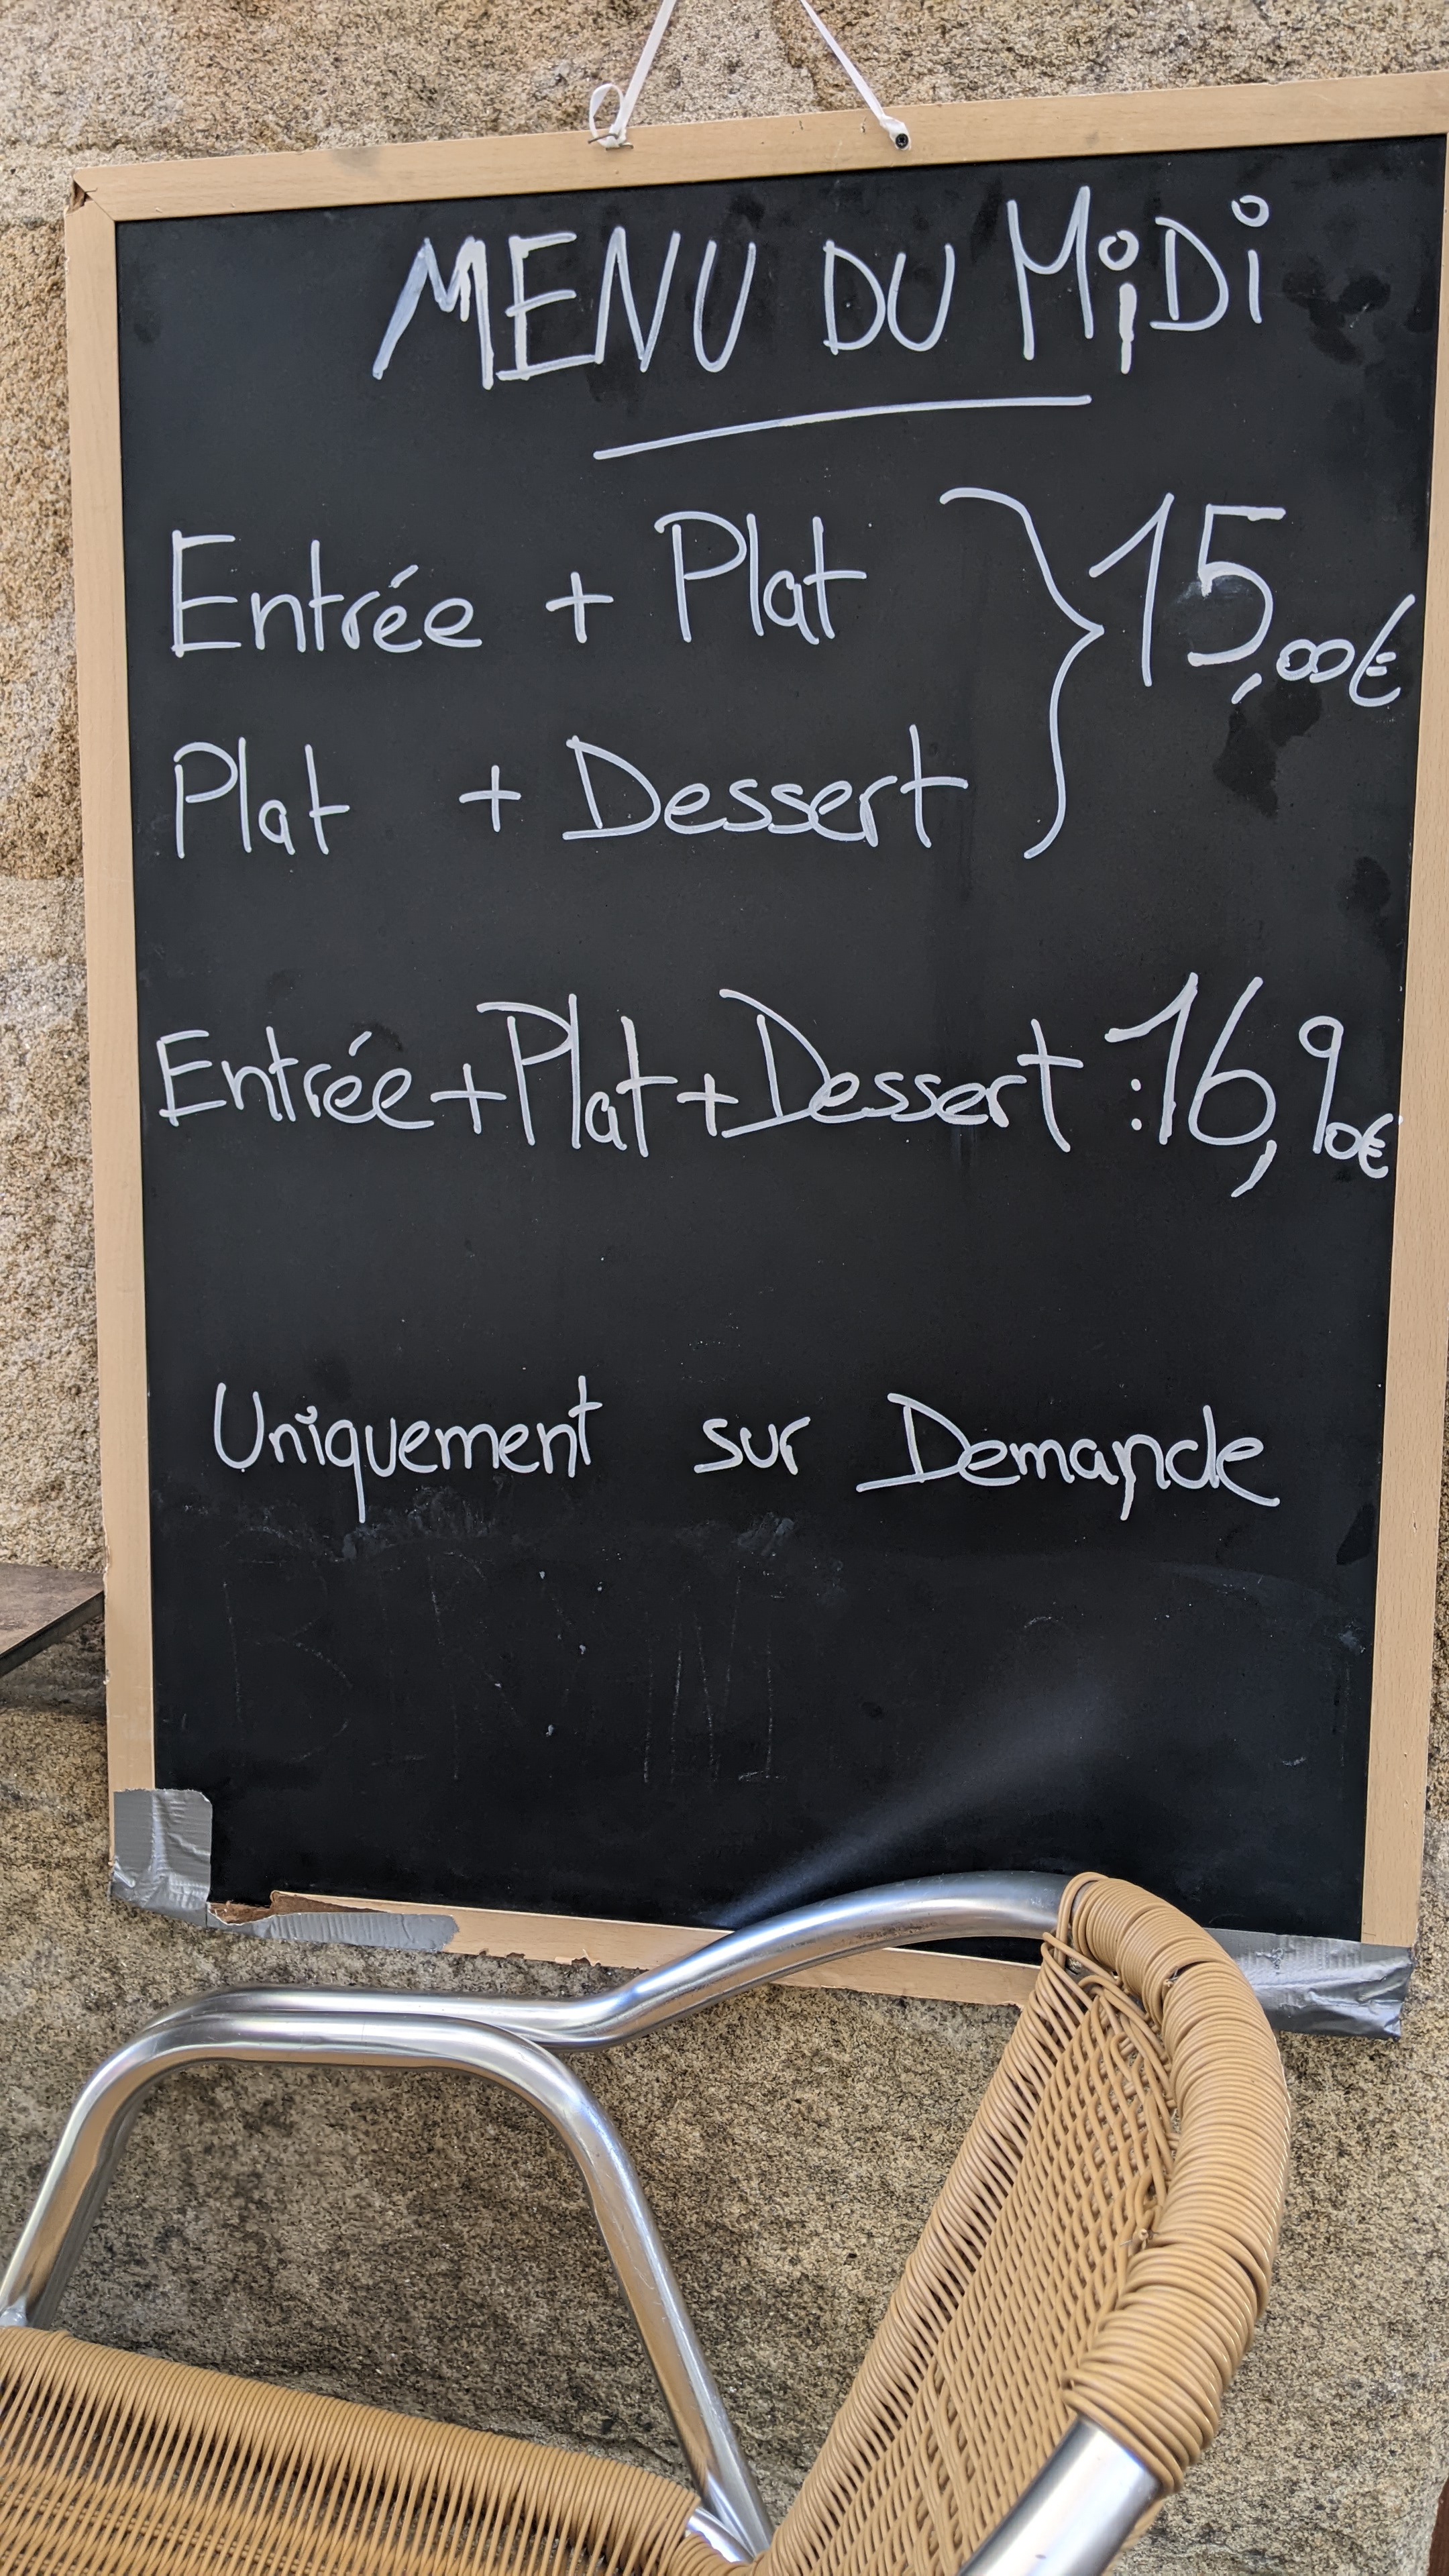 MENU DU MiDi
Entrée + Plat } 15,00€
Plat + Dessert
Entrée+Plat+Dessert : 16,90€
Uniquement sur Demande